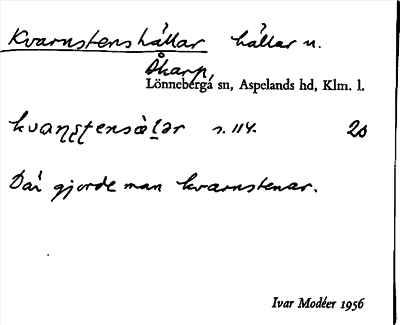 Kvarnstenshällar hällar n.
Åkarp,
Lönneberga sn, Aspelands hd, Klm. l.
s. 114. 20
Där gjorde man kvarnstenar.
Ivar Modéer 1956